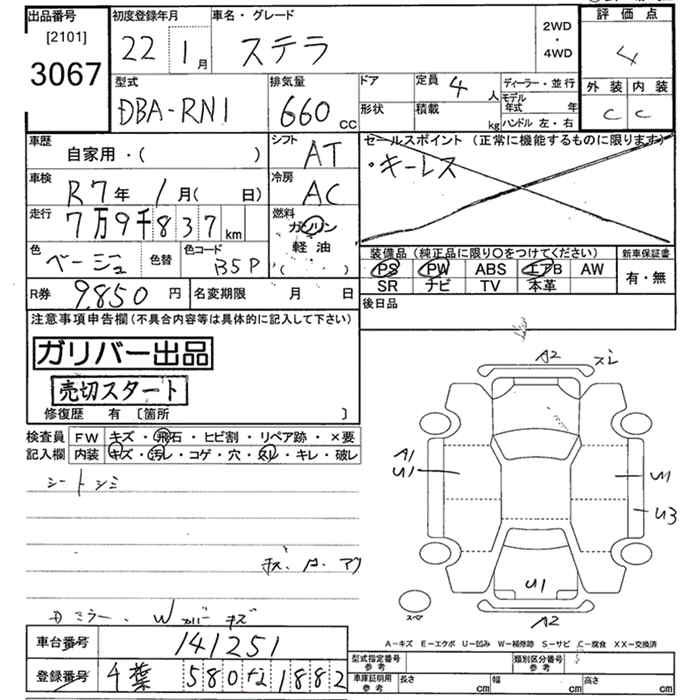 出品番号
[2101]
3067
初度登録年月
22 1月
車名・グレード
ステラ
2WD
・
4WD
評価点
4
外装 内装
C C
型式
DBA-RN1
排気量
660 CC
ドア
形状
定員 4 人
積載 kg
ディーラー・並行
モデル年式 年
ハンドル 左・右
車歴
自家用・( )
シフト
AT
車検
R7年 1月( 日)
冷房
AC
走行
7万9千837km
燃料
ガソリン
軽油
( )
色
ベージュ
色替
色コード
B5P
R券 9850 円
名変期限 月 日
セールスポイント (正常に機能するものに限ります)
・キーレス
装備品 (純正品に限り○をつけてください)
PS PW ABS エアB AW
SR ナビ TV 本革
新車保証書
有・無
後日品
注意事項申告欄(不具合内容等は具体的に記入して下さい)
ガリバー出品
売切スタート
修復歴 有 [箇所 ]
検査員記入欄
FW キズ・飛石・ヒビ割・リペア跡・×要
内装 キズ・汚レ・コゲ・穴・スレ・キレ・破レ
シートシミ
ミラー、Wカバーキズ
A2 スレ
A1
U1
U1
U3
U1
A2
スペア
A−キズ E−エクボ U−凹み W−補修跡 S−サビ C−腐食 XX−交換済
車台番号 141251
登録番号 千葉 580 1882
型式指定番号
参考
類別区分番号
参考
車庫証明用
参考
長さ cm
幅 cm
高さ cm